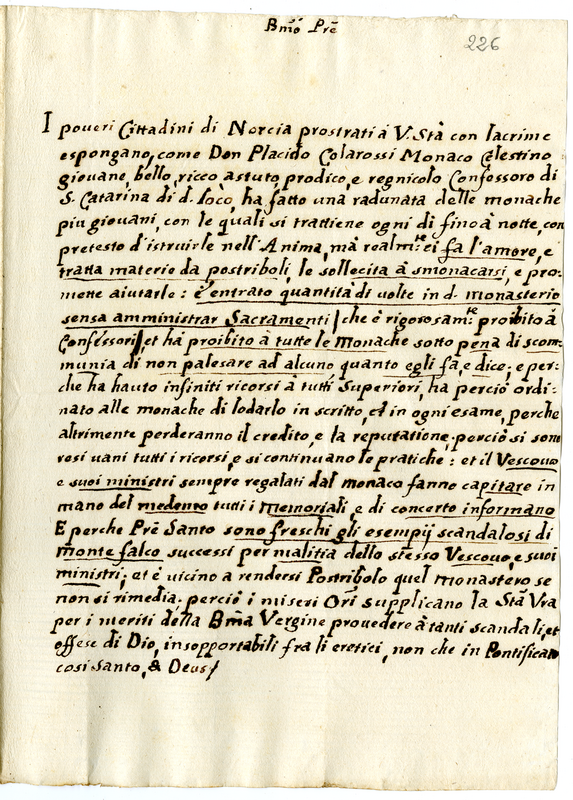 Bmõ Prẽ
226
I poveri Cittadini di Norcia prostrati à V. Stà con lacrime
espongano, come Don Placido Colarossi Monaco Celestino
giovane, bello, ricco astuto, prodico, e regnicolo Confessoro di
S. Catarina di d. loco, ha fatto una radunata delle monache
piu giovani, con le quali si trattiene ogni dì fino à notte, con
pretesto d'istruirle nell'Anima, mà realm:te ei fa l'amore, e
tratta materie da postriboli, le sollecita à smonacarsi, e pro-
mette aiutarle: è entrato quantità di volte in d. monasterio
sensa amministrar Sacramenti / che è rigorosam:te proibito à
Confessori / et hà proibito à tutte le Monache sotto pena di scom-
munia di non palesare ad alcuno quanto egli fà, e dice; e per-
che ha hauto infiniti ricorsi à tutti Superiori, ha perciò ordi-
nato alle monache di lodarlo in scritto, et in ogni esame, perche
altrimente perderanno il credito, e la reputatione. perciò si sono
resi vani tutti i ricorsi, e si continuano le pratiche: et il Vescovo
e suoi ministri sempre regalati dal monaco fanno capitare in
mano del medemo tutti i Memoriali e di concerto informano
E perche Prẽ Santo sono freschi gli esempij scandalosi di
monte falco successi per malitia dello stesso Vescovo, e suoi
ministri; et è vicino a rendersi Postribolo quel monastero se
non si rimedia; perciò i miseri Orĩ supplicano la Stà Vra
per i meriti della Bma Vergine provedere à tanti scandali, et
offese di Dio, insopportabili fra li eretici, non che in Pontificato
così Santo, & Deus/